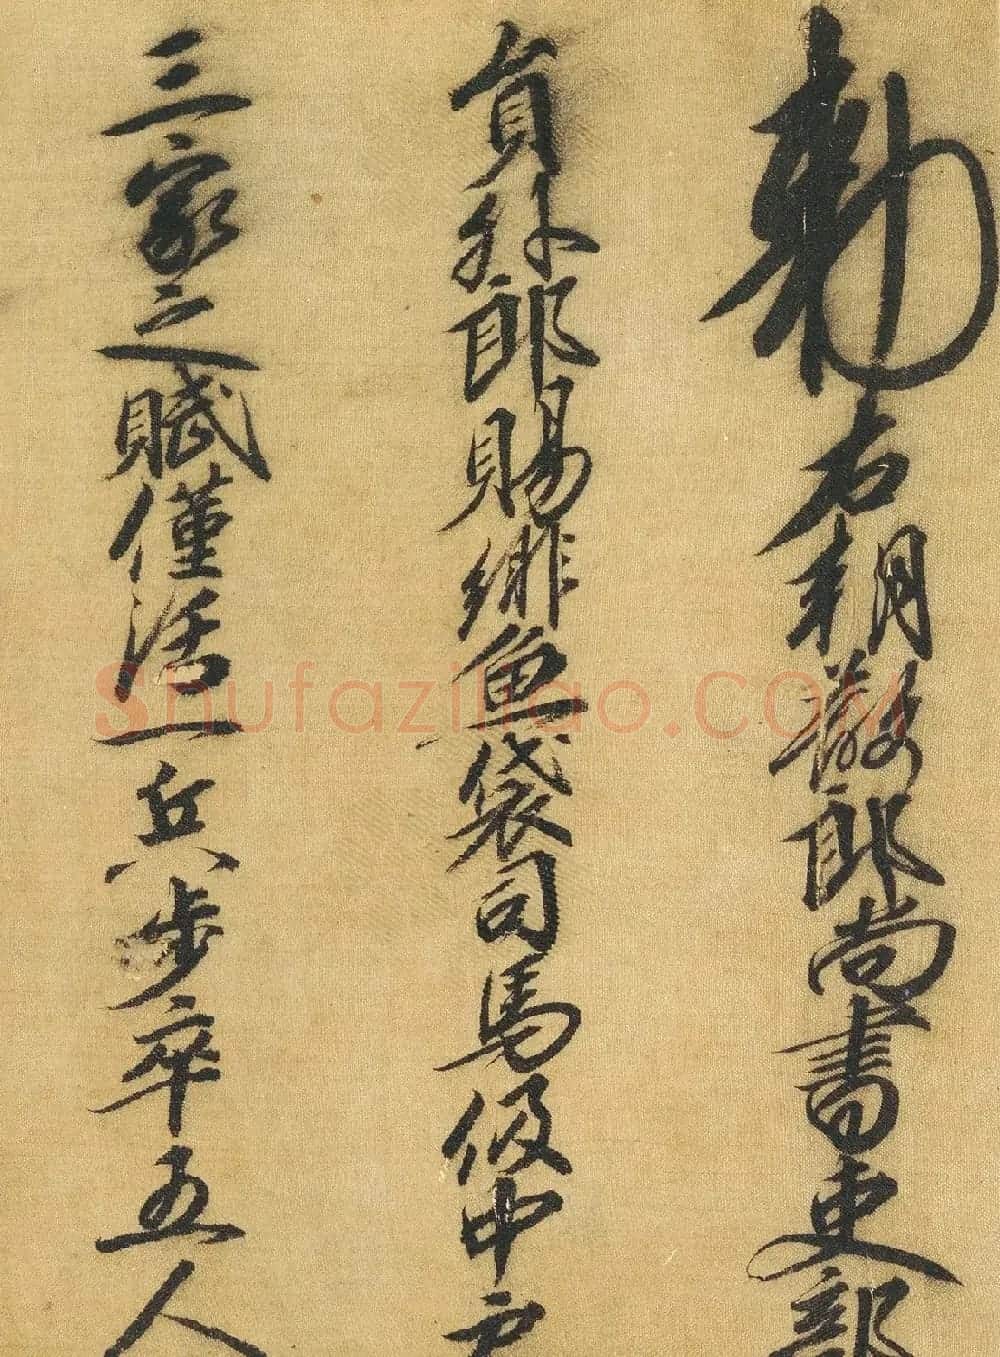 勅右朝散郎尚書吏部
員外郎賜緋魚袋司馬伋中戶
三家之賦僅活一兵步卒五人
Shufaziliao.COM